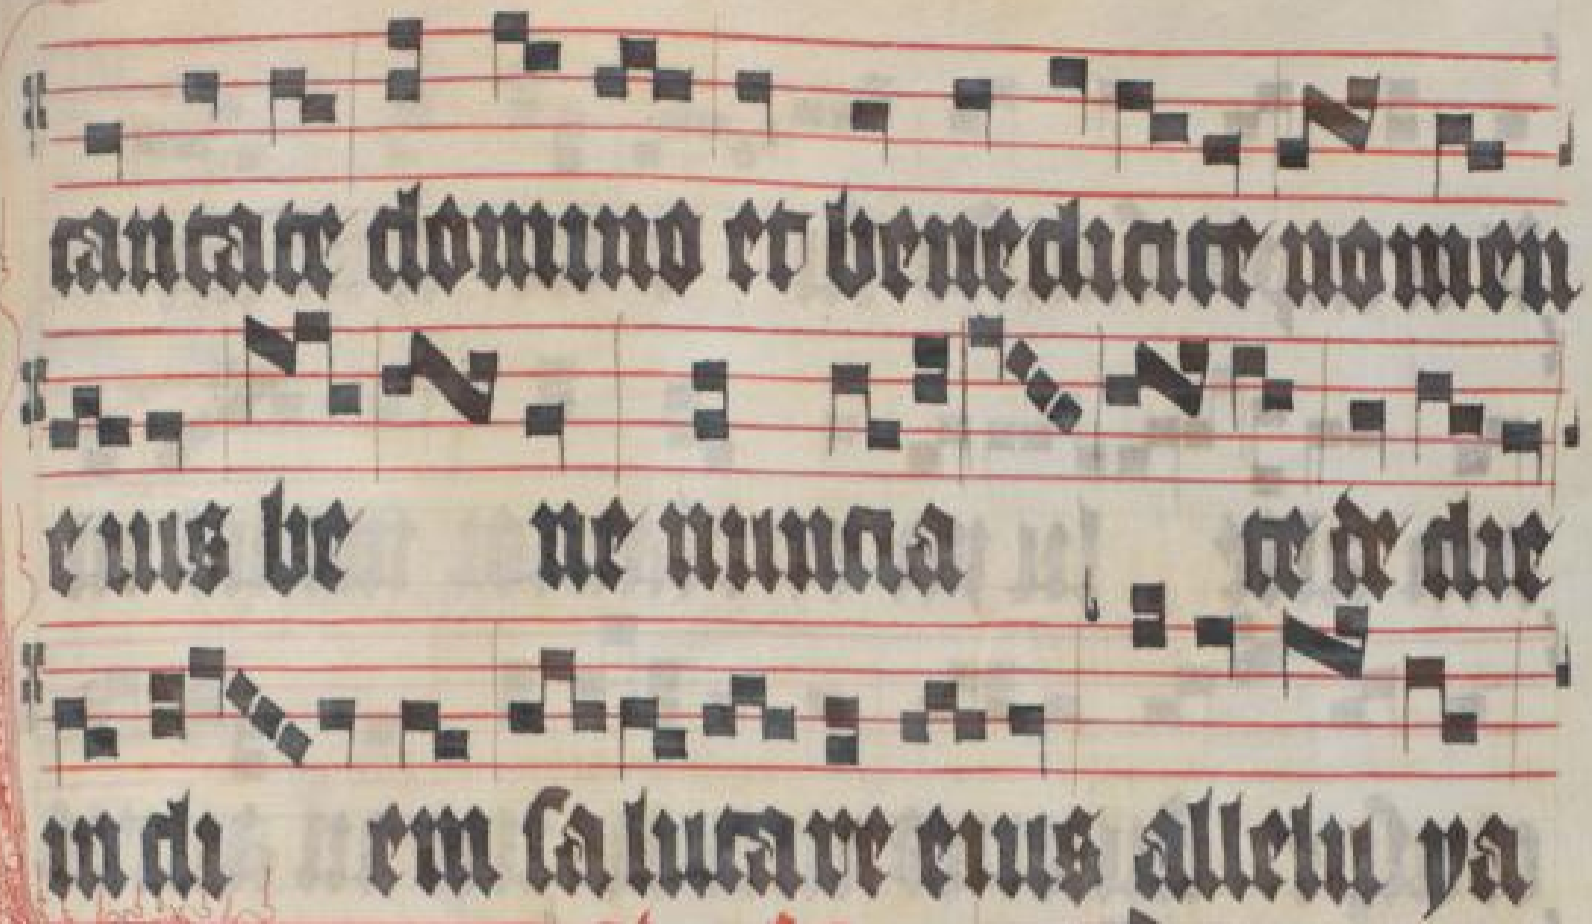 cantate domino et benedicite nomen
e ius be ne nuncia te de die
in di em sa lutare eius allelu ya